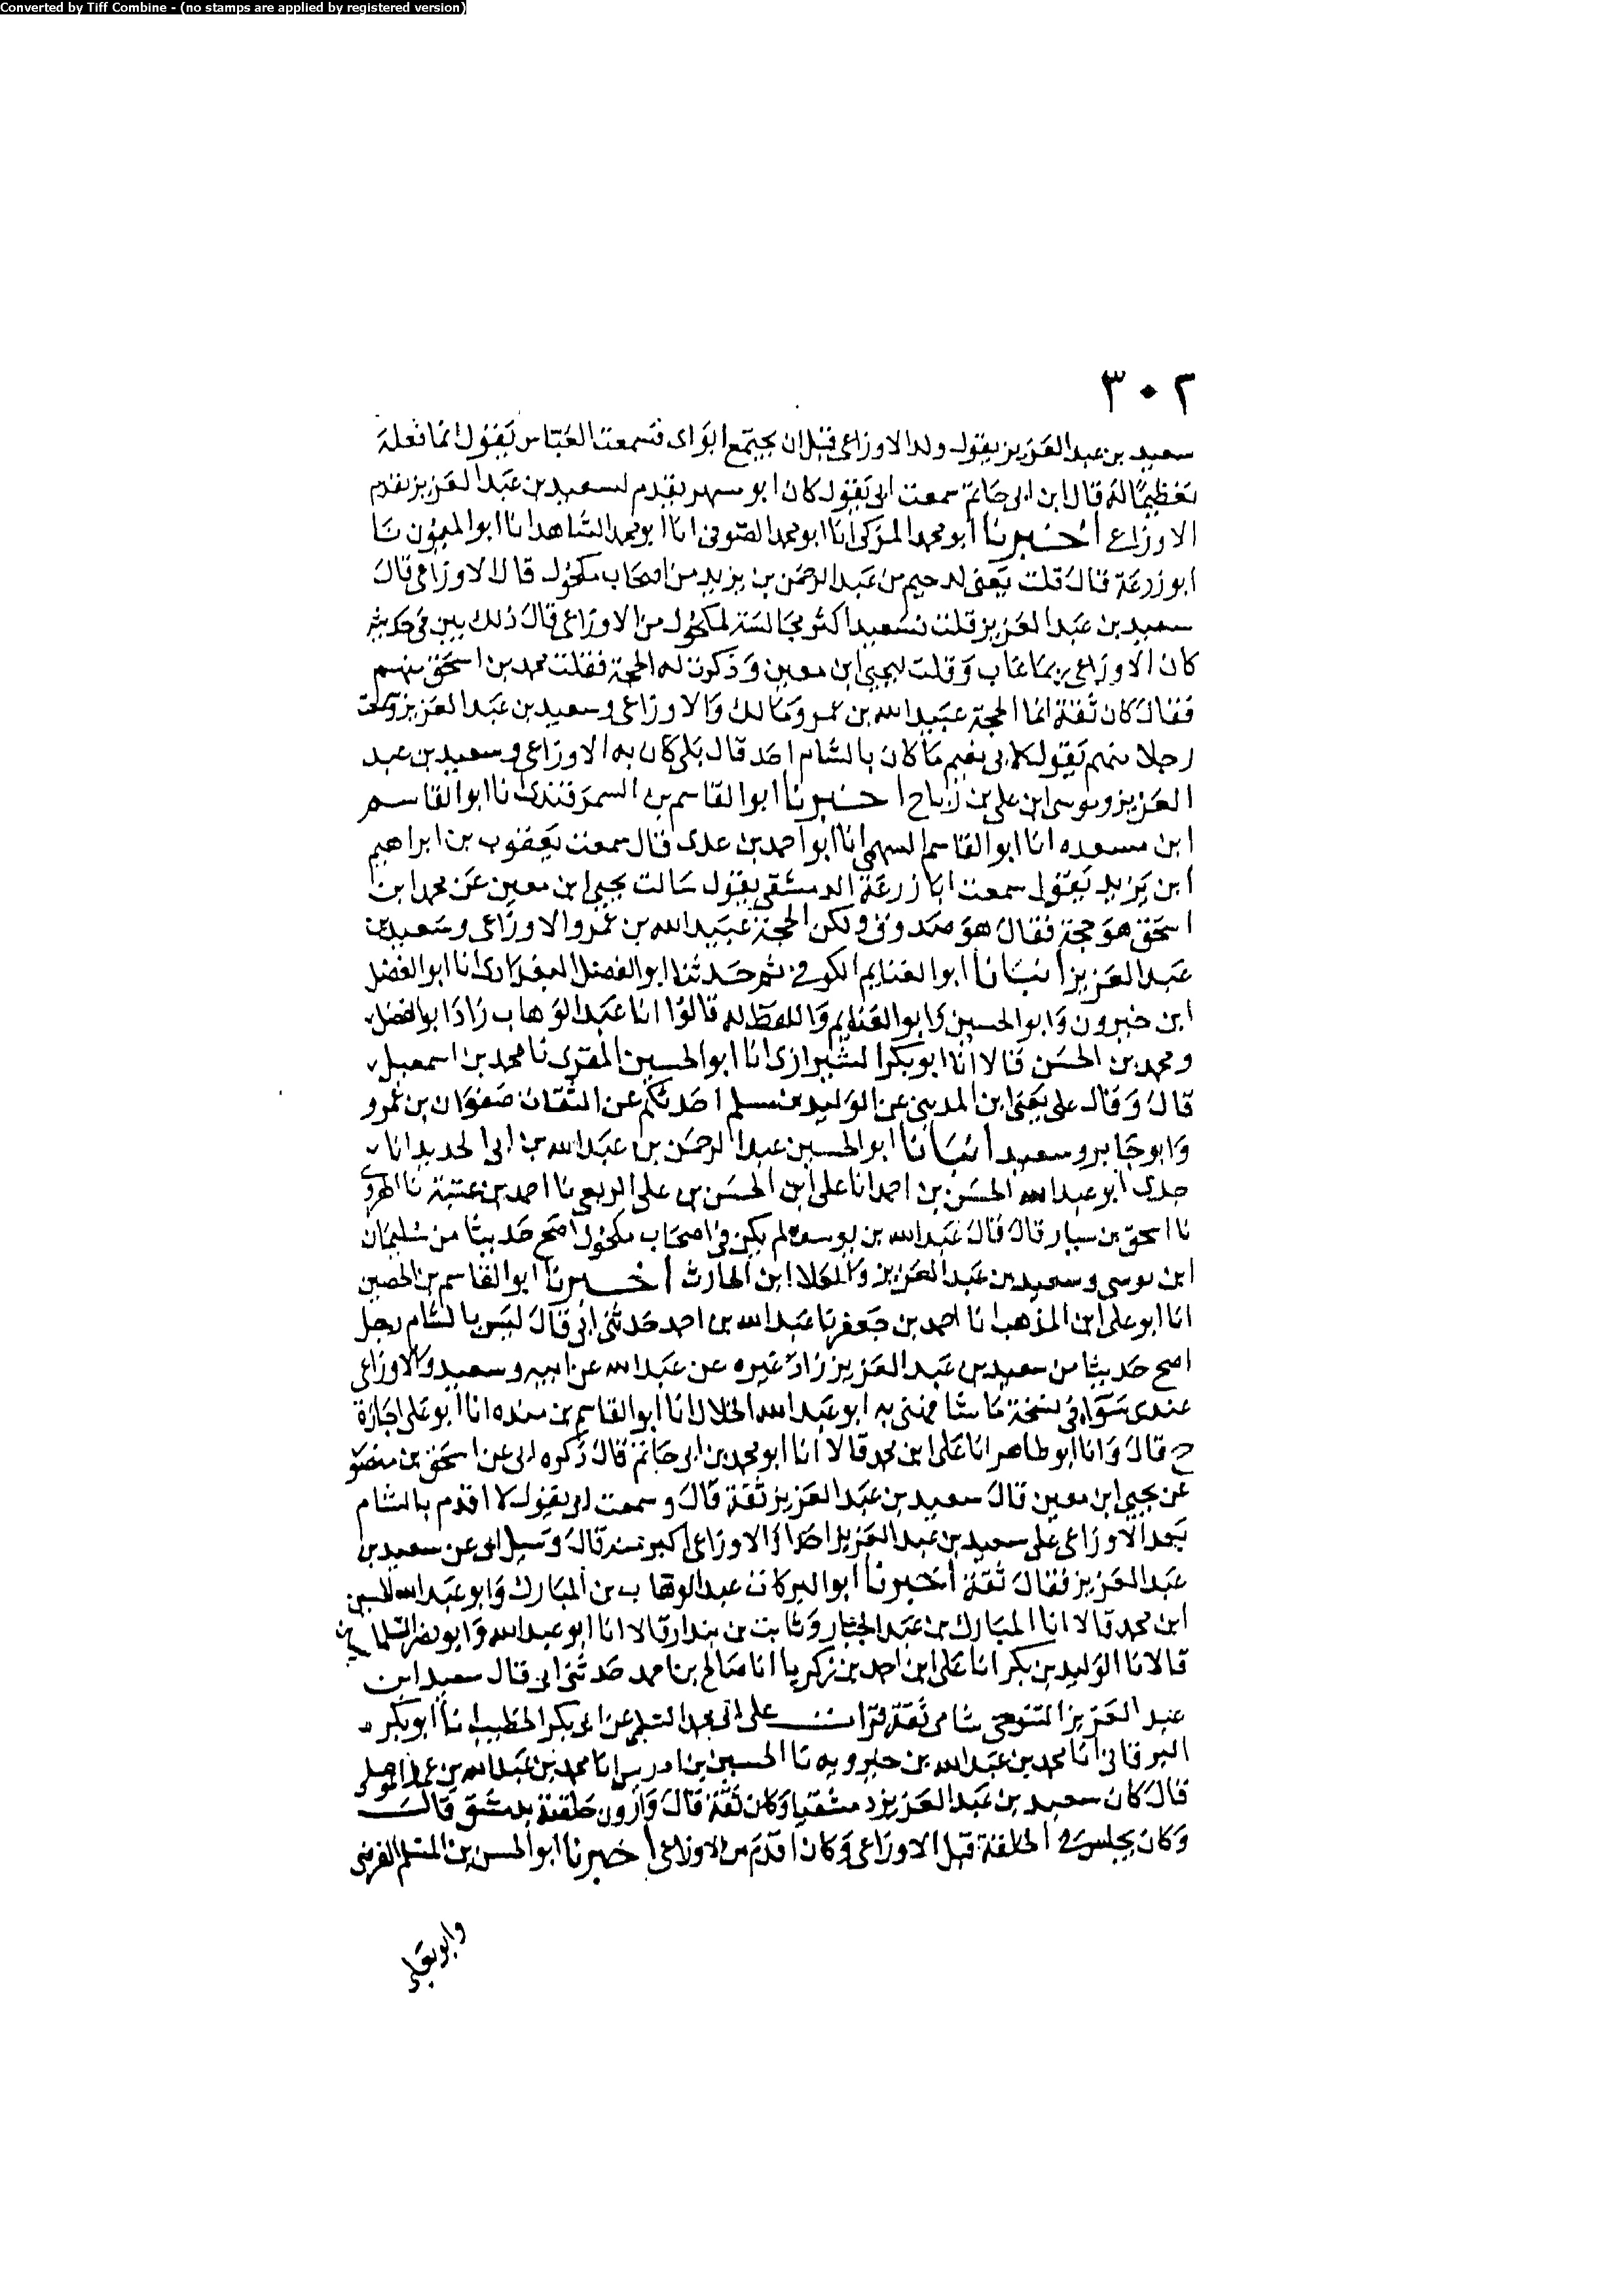 Converted by Tiff Combine - (no stamps are applied by registered version)
٣٠٢
سعيد بن عبد العزيز يقول ولد الاوزاعي قبل ان يجتمع ابواى فسمعت العباس يقول انما فعله
تعظيمًا له قال ابن ابى حاتم سمعت ابى يقول كان ابو مسهر يقدم لسعيد بن عبد العزيز تقدم
الاوزاع اخبرنا ابو محمد المزكى انا ابو محمد الصوفى انا ابو محمد الشاهد انا ابو الميمون نا
ابو زرعة قال قلت يعنى لدحيم من عبد الرحمن بن يزيد من اصحاب مكحول قال الاوزاعى قال
سعيد بن عبد العزيز قلت فسعيد اكثر مجالسة لمكحول من الاوزاعى قال ذلك بين فى حديثه
كان الاوزاعى ربما غاب وقلت ليحيى ابن معين وذكرت له الحجة فقلت محمد بن اسحق منهم
فقال كان ثقة انما الحجة عبيد الله بن عمر ومالك والاوزاعى وسعيد بن عبد العزيز وسمعت
رجلا منهم يقول لابى نعيم ما كان بالشام احد قال بلى كان به الاوزاعى وسعيد بن عبد
العزيز وموسى ابن على بن رباح اخبرنا ابو القاسم بن السمرقندى نا ابو القاسم
ابن مسعده انا ابو القاسم السهمى انا ابو احمد بن عدى قال سمعت يعقوب بن ابراهيم
ابن يزيد يقول سمعت ابا زرعة الدمشقى يقول سالت يحيى ابن معين عن محمد ابن
اسحق هو حجة فقال هو صدوق ولكن الحجة عبيد الله بن عمر والاوزاعى وسعيد بن
عبد العزيز انبانا ابو الغنايم الكوفى ثم حدثنا ابو الفضل البغدادى انا ابو الفضل
ابن خيرون وابو الحسين وابو الغنايم واللفظ له قالوا انا عبد الوهاب زاد ابو الفضل
ومحمد بن الحسن قالا انا ابو بكر الشيرازى انا ابو الحسين المقرى نا محمد بن اسمعيل
قال وقال على يعنى ابن المدينى عن الوليد بن مسلم احدثكم عن الثقات صفوان بن عمرو
وابو جابر وسعيد انبانا ابو الحسين عبد الرحمن بن عبد الله بن ابى الحديد انا
جدى ابو عبد الله الحسن بن احمد انا على ابن الحسن بن على الربعى نا احمد بن عتبة نا الهروى
نا اسحق بن سيار قال قال عبد الله بن يوسف لم يكن فى اصحاب مكحول اصح حديثا من سليمان
ابن موسى وسعيد بن عبد العزيز والعلا ابن الحارث اخبرنا ابو القاسم بن الحصين
انا ابو على ابن المذهب انا احمد بن جعفر نا عبد الله بن احمد حدثنى ابى قال ليس بالشام رجل
اصح حديثا من سعيد بن عبد العزيز زاد غيره عن عبد الله عن ابيه وسعيد والاوزاعى
عندى سواء فى نسخة ما شافهنى به ابو عبد الله الخلال انا ابو القاسم بن منده انا ابو على اجازة
ح قال وانا ابو طاهر انا على ابن محمد قالا انا ابو محمد بن ابى حاتم قال ذكره ابى عن اسحق بن منصور
عن يحيى ابن معين قال سعيد بن عبد العزيز ثقة قال وسمعت ابى يقول لا اقدم بالشام
بعد الاوزاعى على سعيد بن عبد العزيز احدا والاوزاعى اكبر منه قال وسيل ابى عن سعيد بن
عبد العزيز فقال ثقة اخبرنا ابو البركات عبد الوهاب بن المبارك وابو عبد الله الحسين
ابن محمد قالا انا المبارك بن عبد الجبار وثابت بن بندار قالا انا ابو عبد الله وابو نصر
قالا نا الوليد بن بكر انا على ابن احمد بن زكريا انا صالح بن احمد حدثنى ابى قال سعيد ابن
عبد العزيز التنوخى شامى ثقة قرات على ابى محمد السلمى عن ابى بكر الخطيب انا ابو بكر
البرقانى انا محمد بن عبد الله بن خميرويه نا الحسين بن ادريس انا محمد بن عبد الله بن عمار الموصلى
قال كان سعيد بن عبد العزيز دمشقيا وكان ثقة قال وارون حلقته بدمشق قال
وكان يجلس فى الحلقة قبل الاوزاعى وكان اقدم من الاوزاعى اخبرنا ابو الحسن بن المسلم الفرضى
وابو يعلى